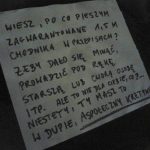 WIESZ, PO CO PIESZYM
ZAGWARANTOWANE 1,5 M
CHODNIKA W PRZEPISACH?
ŻEBY DAŁO SIĘ MINĄĆ,
PROWADZIĆ POD RĘKĘ
STARSZĄ LUB CHORĄ OSOBĘ
ITP. ALE TO NIE DLA CIEBIE, CO?
NIESTETY! TY MASZ TO
W DUPIE ASPOŁECZNY KRETYNIE